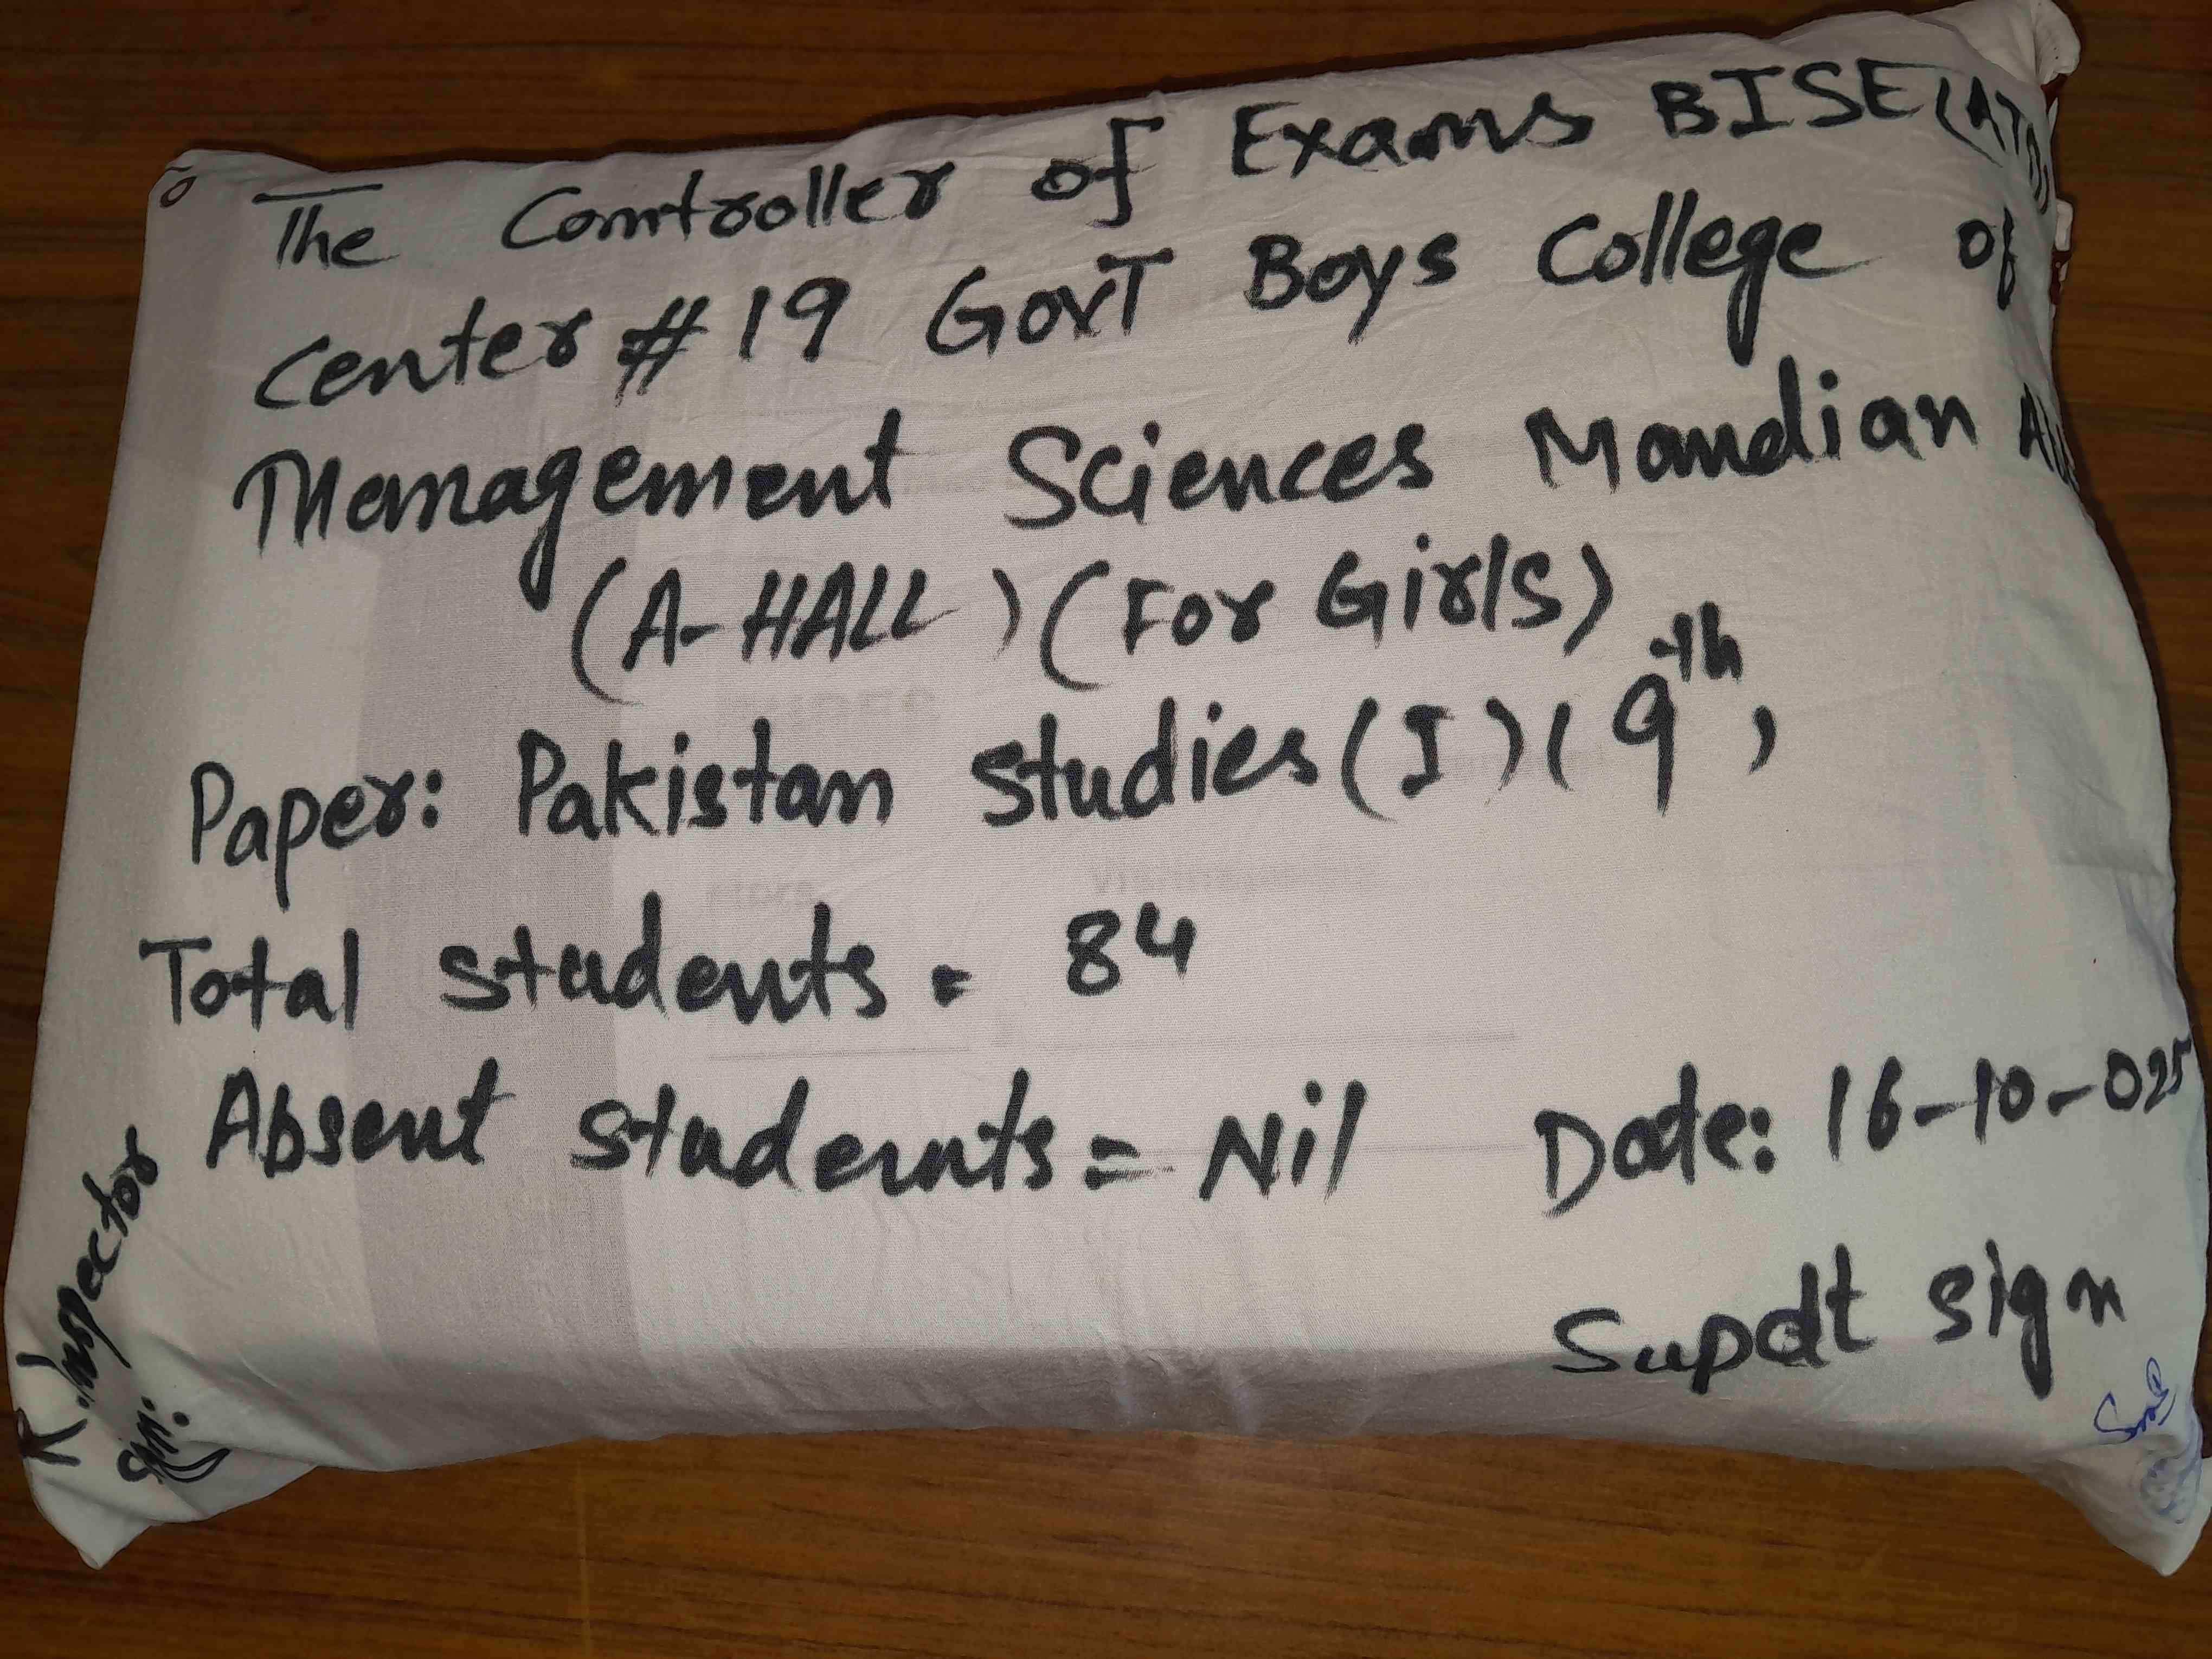 The Controller of Exams BISE (ATD)
Center # 19 GovT Boys College of
Management Sciences Mandian
(A-HALL) (For Girls)
Paper: Pakistan Studies (I) (9th)
Total students = 84
Absent students = Nil
Date: 16-10-025
Supdt sign
R. Inspector